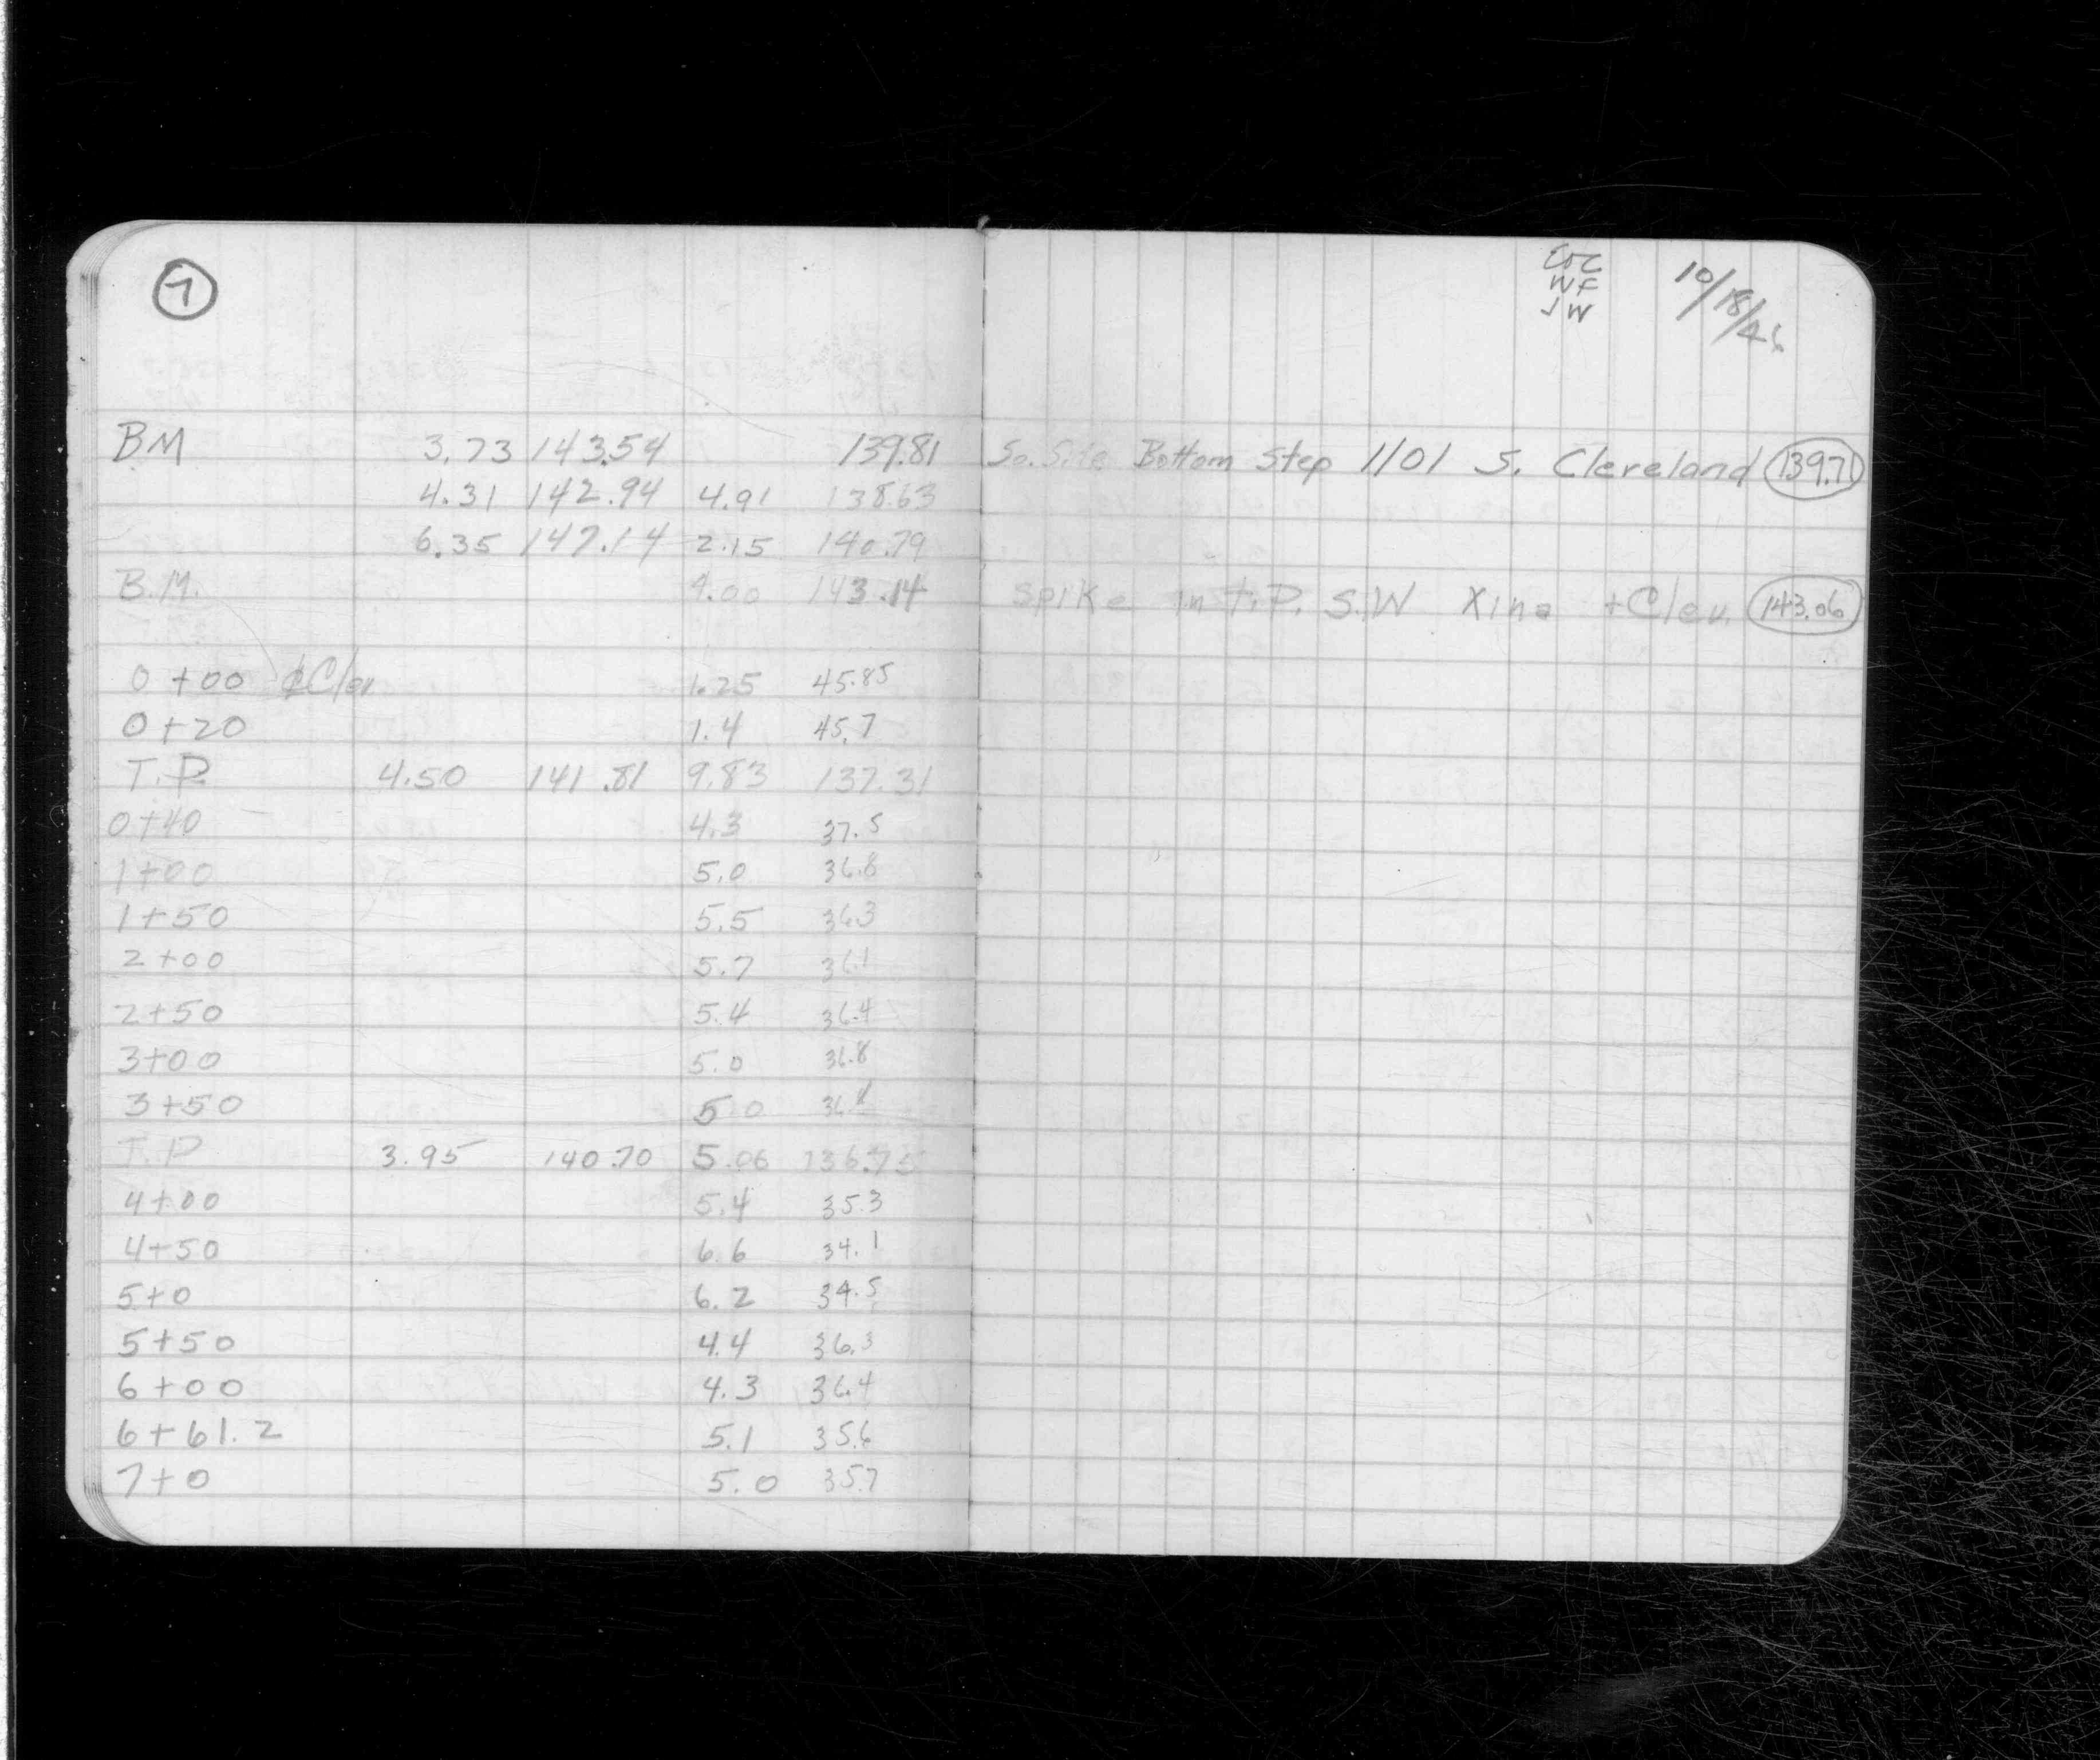 7
WF
JW
10/18/46
BM 3.73 143.54 139.81 So. Side Bottom Step 1101 S. Cleveland 139.71
4.31 142.94 4.91 138.63
6.35 147.14 2.15 140.79
B.M. 4.00 143.14 Spike in T.P. S.W Xing + Clev. 143.06
0+00 ¢Clev 1.25 45.85
0+20 1.4 45.7
T.P. 4.50 141.81 9.83 137.31
0+40 4.3 37.5
1+00 5.0 36.8
1+50 5.5 36.3
2+00 5.7 36.1
2+50 5.4 36.4
3+00 5.0 36.8
3+50 5.0 36.8
T.P 3.95 140.70 5.06 136.75
4+00 5.4 35.3
4+50 6.6 34.1
5+0 6.2 34.5
5+50 4.4 36.3
6+00 4.3 36.4
6+61.2 5.1 35.6
7+0 5.0 35.7